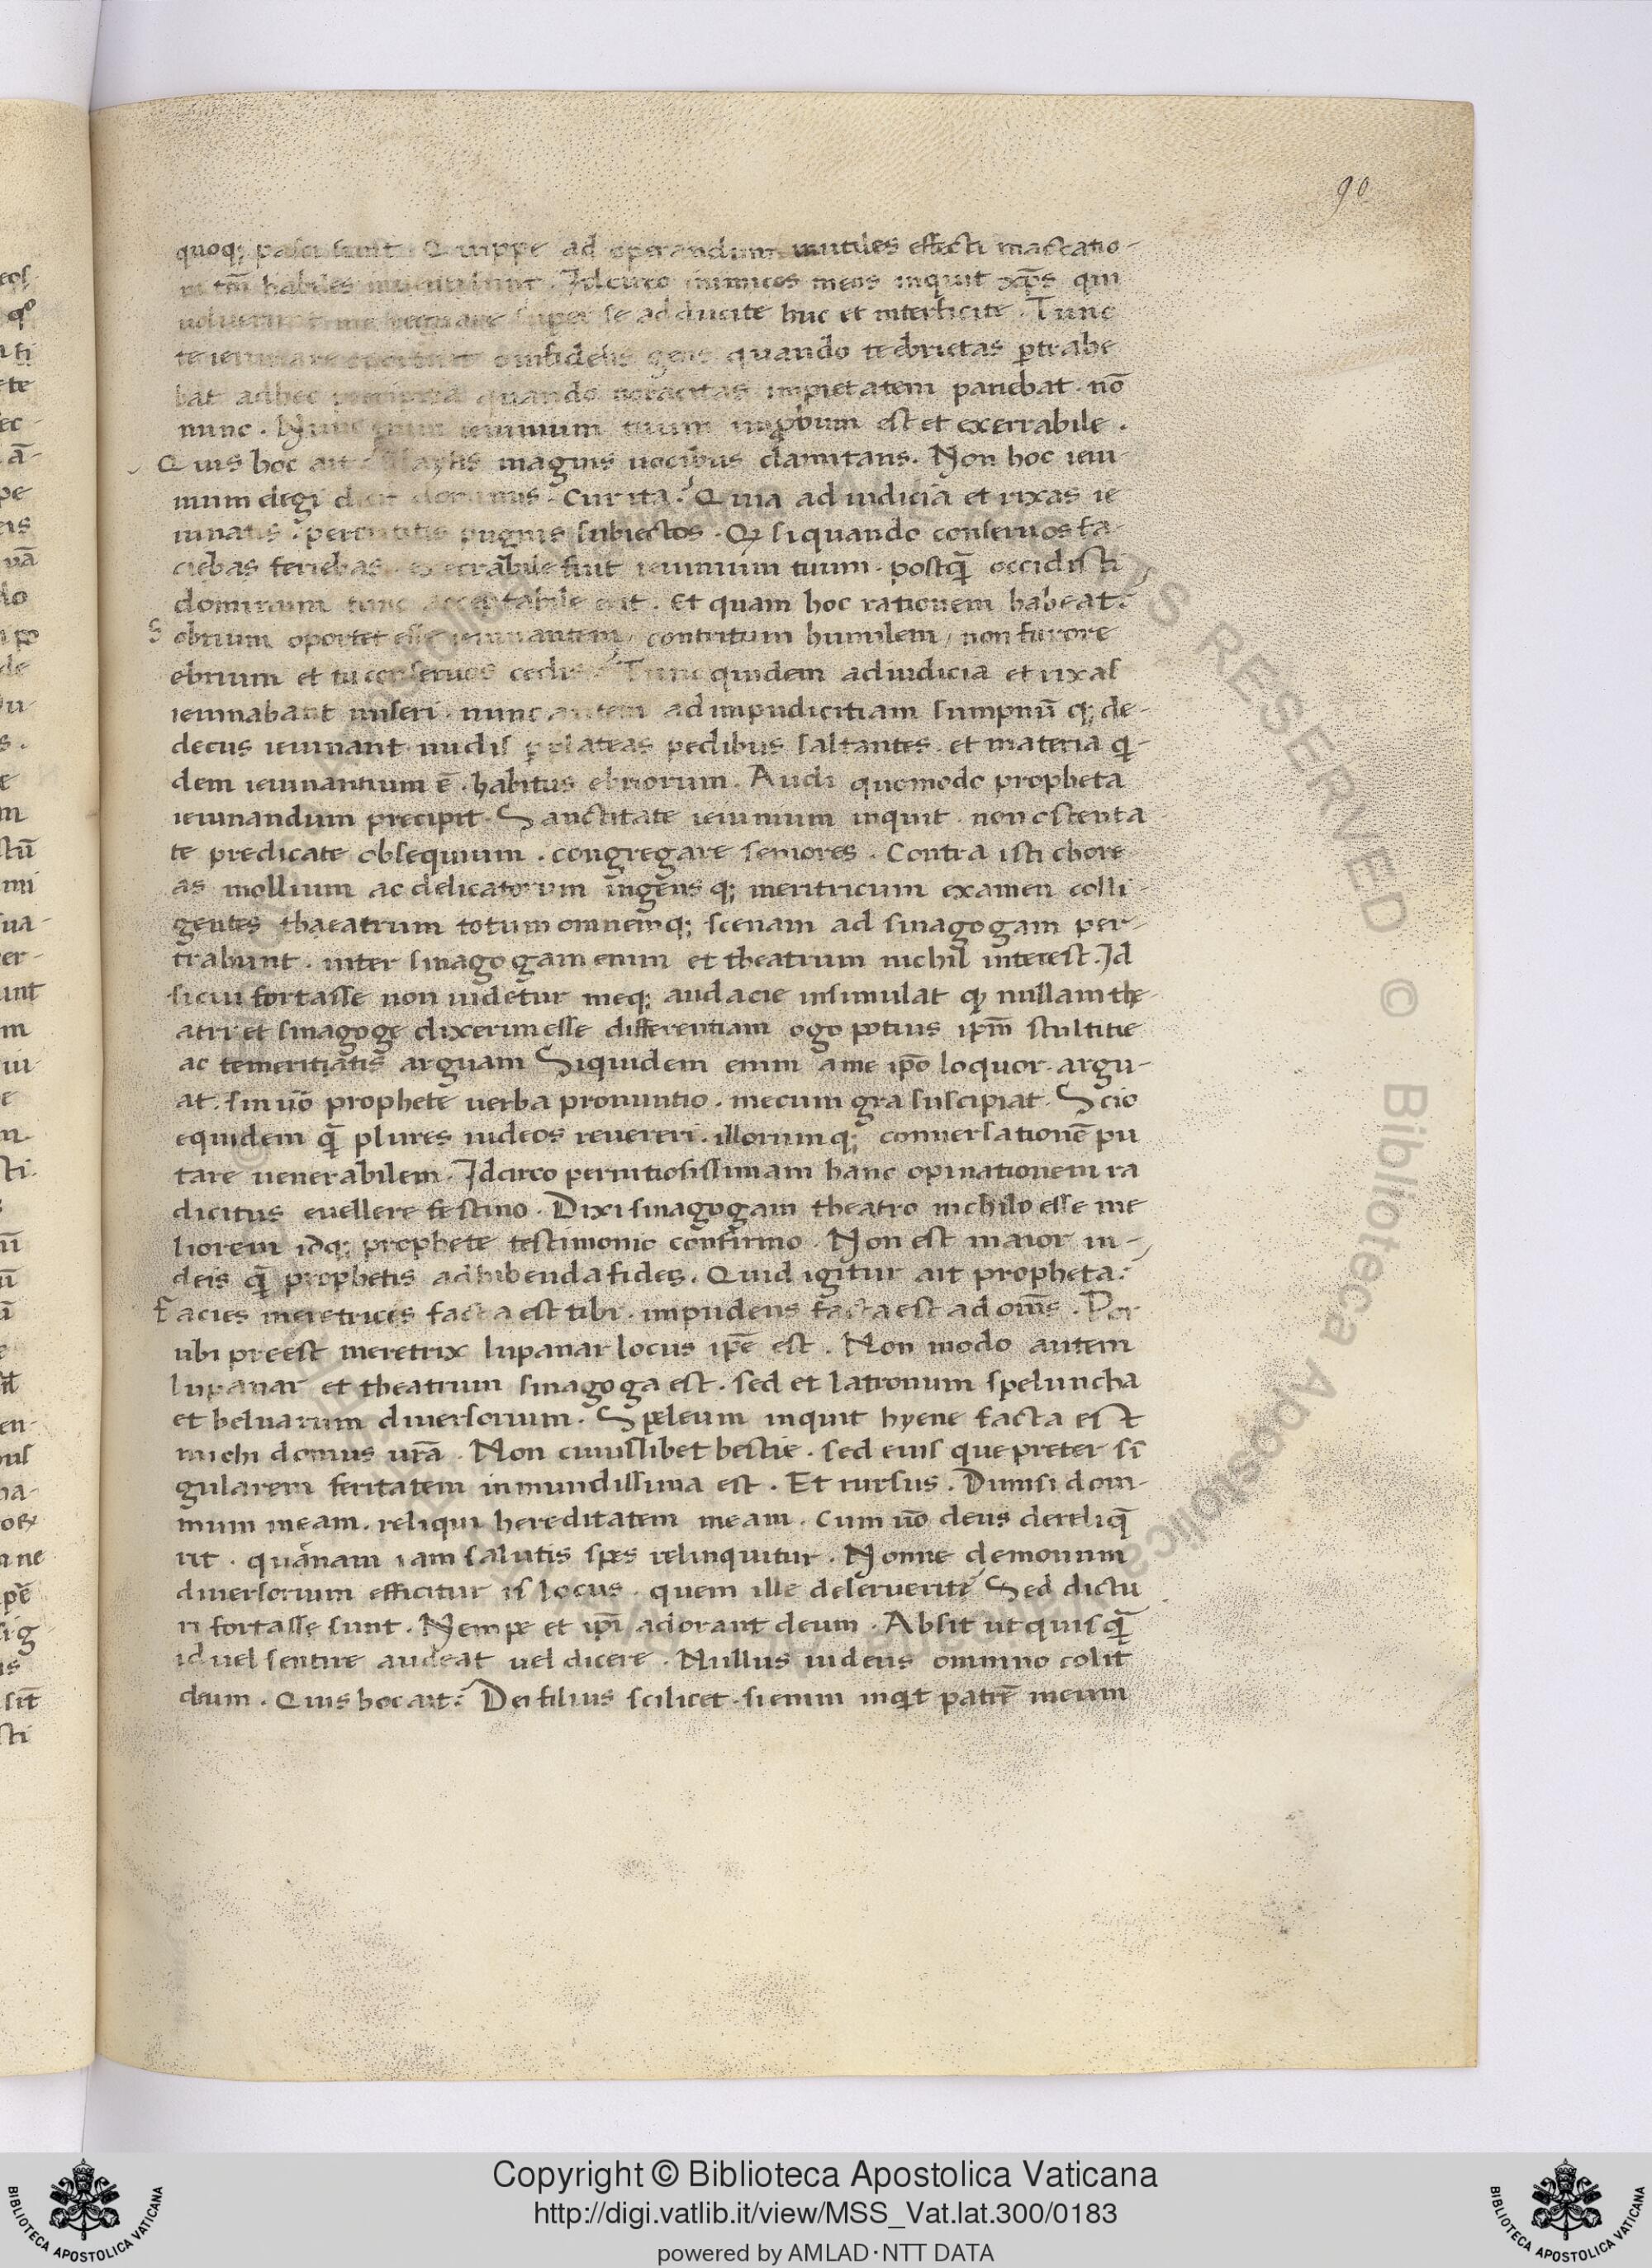 90
quoq; passi sunt. Quippe ad operandum inutiles effecti mactatio-
ni tm̄ habiles inueniuntur. Idcirco inimicos meos inquit xp̄s qui
me regnare super se adducite huc et interficite. Tunc
te ieiunare oportuit o infidelis gens quando te ebrietas ꝑtrahe
bat ad hec quando uoracitas impietatem pariebat. nō
nunc. Nunc enim ieiunium tuum improbum est et exerrabile.
Quis hoc ait? Esaytis magnis uocibus clamitans. Non hoc ieiu-
nium elegi dicit dominus. Cur ita? Quia ad iudicia et rixas ie
iunatis. percutitis pugnis subiectos. Qꝫ si quando conseruos fa-
ciebas feriebas. execrabile fuit ieiunium tuum. postq̄ occidisti
dominum tunc acceptabile erit. et quam hoc rationem habeat?
Sobrium oportet esse ieiunantem, contritum humilem, non furore
ebrium et tu conseruos cedis? Tunc quidem ad iudicia et rixas
ieiunabant miseri. nunc autem ad impudicitiam sumpnū q; de-
decus ieiunant. nudis ꝑ plateas pedibus saltantes. et materia q-
dem ieiunantium ē. habitus ebriorum. Audi quomodo propheta
ieiunandum precipit. Sanctitate ieiunium inquit. non ostenta
te predicate obsequium. congregare seniores. Contra isti chore
as mollium ac delicatorum ingens q; meritricum examen colli-
gentes thaeatrum totum omnemq; scenam ad sinagogam per-
trahunt. inter sinagogam enim et theatrum nichil interest. Id
sicui fortasse non uidetur meq; audacie insimulat qꝫ nullam the-
atri et sinagoge dixerim esse differentiam ogo potius ip̄m stultitie
ac temeritiatis arguam Siquidem enim a me ip̄o loquor. argu-
at. sin uō prophete uerba pronuntio. mecum gra suscipiat. Scio
equidem q̄ plures iudeos reuereri. illorumq; conuersationē pu
tare uenerabilem. Idcirco pernitiosissimam hanc opinationem ra
dicitus euellere festino. Dixi sinagogam theatro nichilo esse me
liorem idq; prophete testimonio confirmo. Non est maior iu-
deis q̄ prophetis adhibenda fides. Quid igitur ait propheta?
Facies meretrices facta est tibi. impudens facta est ad om̄s. Por
ubi preest meretrix lupanar locus ip̄e est. Non modo autem
lupanar et theatrum sinagoga est. sed et latronum speluncha
et beluarum diuersorium. Speleum inquit hyene facta est
michi domus ur̄a. Non cuiuslibet bestie. sed eius que preter sī
gularem feritatem inmundissima est. Et rursus. Dimisi dom-
mum meam. reliqui hereditatem meam. Cum uō deus dereliq̄
rit. quānam iam salutis spes relinquitur. Nonne demonum
diuersorium efficitur is locus. quem ille deseruerit? Sed dictu
ri fortasse sunt. Nempe et ip̄i adorant deum. Absit ut quisq̄
id uel sentire audeat uel dicere. Nullus iudeus omnino colit
deum. Quis hoc ait? Dei filius scilicet. si enim inqt patrē meum
Copyright © Biblioteca Apostolica Vaticana
http://digi.vatlib.it/view/MSS_Vat.lat.300/0183
powered by AMLAD·NTT DATA
BIBLIOTECA APOSTOLICA VATICANA
BIBLIOTECA APOSTOLICA VATICANA